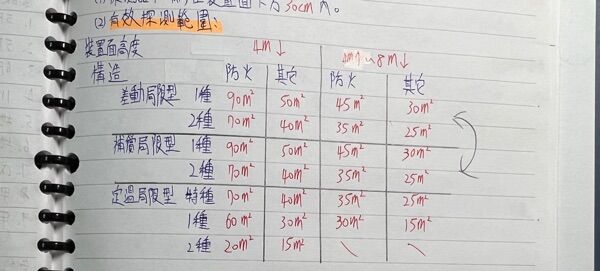 裝置面下方30cm內。
(2)有效探測範圍:
裝置面高度 4m↓ 4m~8m↓
構造 防火 其它 防火 其它
差動局限型 1種 90m² 50m² 45m² 30m²
2種 70m² 40m² 35m² 25m²
補償局限型 1種 90m² 50m² 45m² 30m²
2種 70m² 40m² 35m² 25m²
定溫局限型 特種 70m² 40m² 35m² 25m²
1種 60m² 30m² 30m² 15m²
2種 20m² 15m² \ \